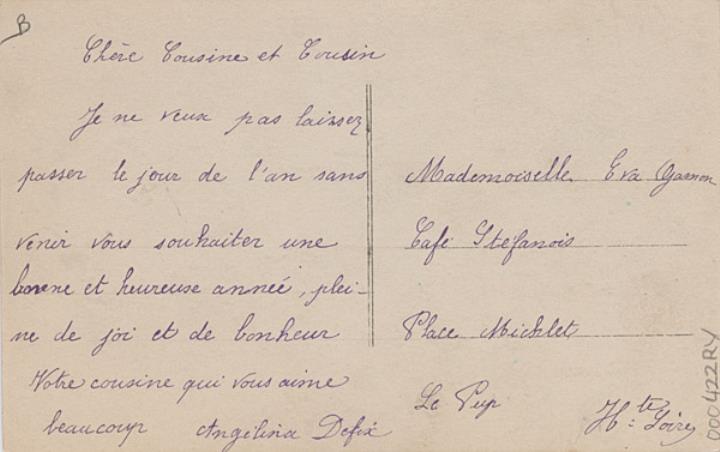 B
Chère Cousine et Cousin
Je ne veux pas laissez
passer le jour de l'an sans
venir vous souhaiter une
bonne et heureuse année, plei-
ne de joi et de bonheur
Votre cousine qui vous aime
beaucoup Angélina Defix
Mademoiselle Eva
Café Stéfanois
Place Michlet
Le Puy
Hte Loire
000422RY